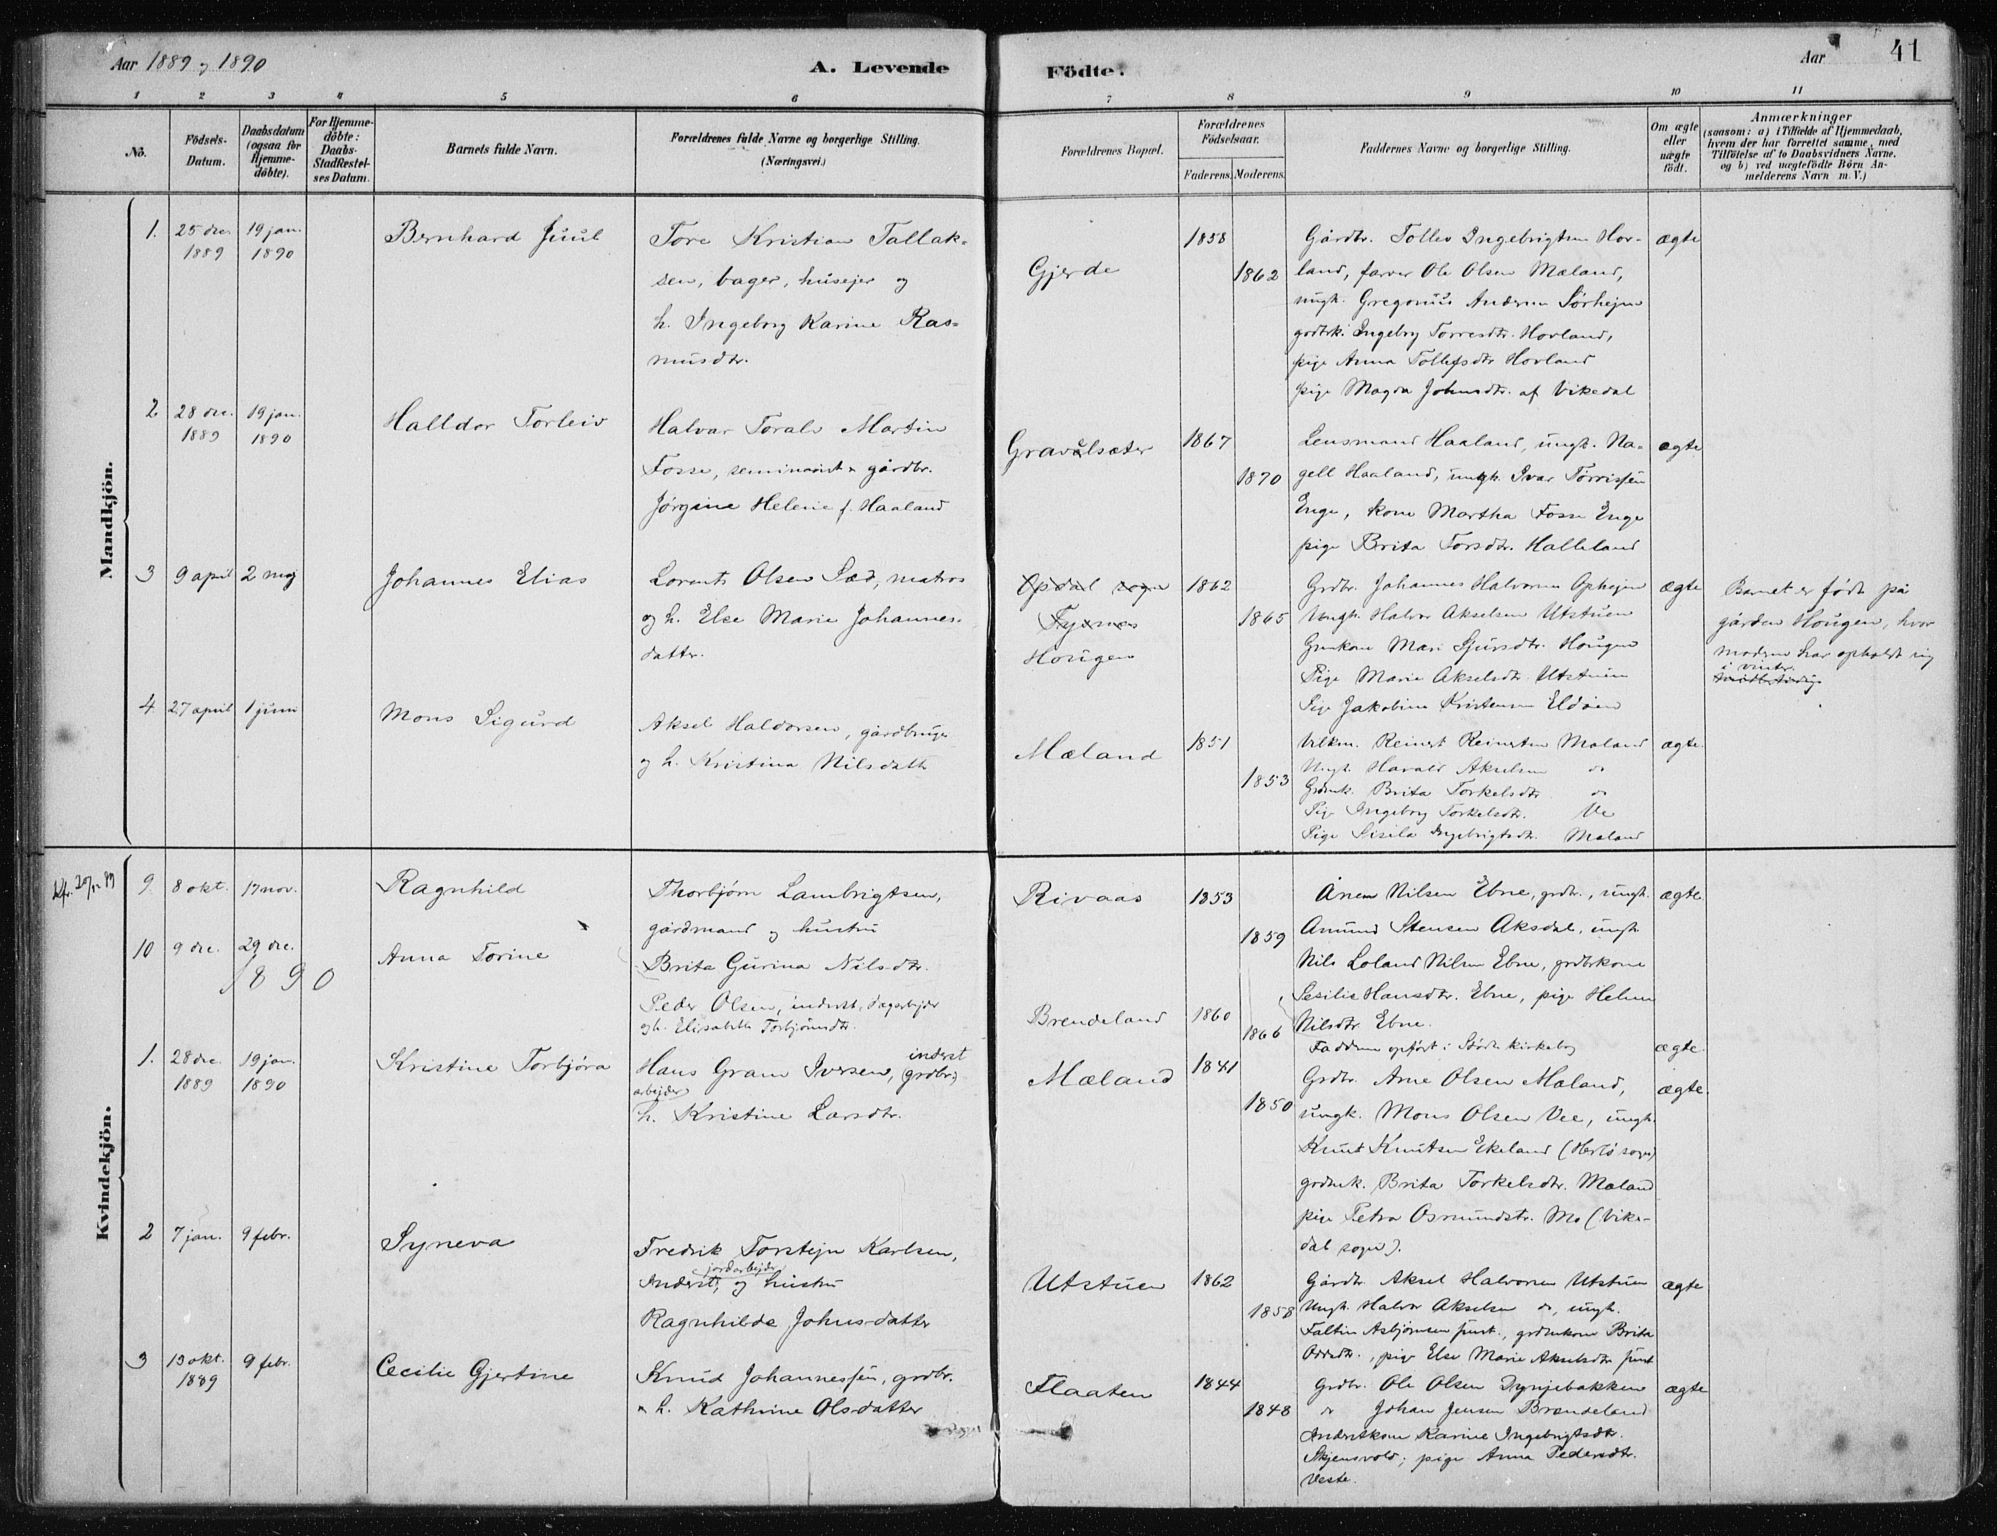 Aar 1889 og 1890
A. Levende
Födte.
Aar
41
1 2 3 4 5 6
7 8 9 10 11
Nô.
Födsels-
Datum.
Daabsdatum
(ogsaa for
Hjemme-
döbte).
For Hjemme-
döbte:
Daabs-
Stadfæstel-
ses Datum.
Barnets fulde Navn.
Forældrenes fulde Navne og borgerlige Stilling.
(Næringsvei.)
Forældrenes Bopæl.
Forældrenes
Födselsaar.
Faderens. Moderens.
Faddernes Navne og borgerlige Stilling.
Om ægte
eller
uægte
födt.
Anmærkninger
(saasom: a) i Tilfælde af Hjemmedaab,
hvem der har forrettet samme, med
Tilföielse af to Daabsvidners Navne,
og b) ved uægtefödte Börn An-
melderens Navn m. V.)
Mandkjön.
1. 25 dec. 1889
19 jan. 1890
Bernhard Juul
Tore Kristian Tallak-
sen, bager, husejer og
h. Ingeborg Karine Ras-
musdtr.
Gjerde
1858
1862
Gårdbr. Tollev Ingebrigtsen Hov-
land, farver Ole Olsen Mæland,
ungk. Gregorius Andersen Sørhejm
grdbrk. Ingeborg Torresdtr. Hovland,
pige Anna Tollefsdtr Hovland
pige Magda Johnsdtr. af Vikedal
ægte
2 28 dec. 1889
19 jan. 1890
Halldor Torleiv
Halvar Toralv Martin
Fosse, seminarist & gårdbr.
Jørgine Helene f. Haaland
Gravelsæter
1867
1870
Lensmand Haaland, ungk. Na-
gell Haaland, ungk. Ivar Torrissen
Enge, kone Martha Fosse Enge
pige Brita Torsdtr. Halleland
ægte
3 9 april 2 maj
Johannes Elias
Lorents Olsen Sæd, matros
og h. Else Marie Johannes-
datter.
Opdal sogn
Tysnes
Hougen
1862
1865
Grdbr. Johannes Halvorsen Ophejm
Ungk. Halvor Akselsen Utstuen
Grmkone Mari Sjursdtr. Hougen
Pige Marie Akselsdtr. Utstuen
Pige Jakobine Kristensen Eldøen
ægte
Barnet er født på
gården Hougen, hvor
moderen har opholdt sig
i vinter.
4. 27 april 1 juni
Mons Sigurd
Aksel Haldorsen, gårdbruger
og h. Kristina Nilsdatter
Mæland
1851
1853
Reinert Reinertsen Mæland
Ungk. Harald Akselsen do
Grdmk. Brita Torkelsdtr. do
Pige Ingeborg Torkelsdtr. Ve
Pige Sisila Ingebrigtsdtr. Mæland
ægte
Kvindekjön.
9. 8 okt. 17 nov.
Ragnhild
Thorbjørn Lambrigtsen,
gårdmand og hustru
Brita Gurina Nilsdtr.
Rivaas
1853
1859
Anen Nilsen Ebne, grdbr., ungk.
Amund Stensen Aksdal, ungk.
Nils Loland Nilsen Ebne, grdbrkone
Sesilie Hansdtr. Ebne, pige Helene
Nilsdtr. Ebne.
ægte
10 9 dec. 29 dec.
Anna Torine
Peder Olsen, inderst, dagarbejder
og h. Elisabeth Torbjørnsdtr.
Brendeland
1860
1866
Fadderne opført i Søvde kirkebog
ægte.
1890
1. 28 dec. 1889
19 jan. 1890
Kristine Torbjøra
Hans Gram Iversen, inderst (grdbr.)
arbejder
h. Kristine Larsdtr.
Mæland
1841
1850
Grdbr. Arne Olsen Mæland,
ungk. Mons Olsen Vee, ungk.
Knut Knutsen Ekeland (Herlø sogn)
grdmk. Brita Torkelsdtr. Mæland
pige Petra Osmundstr. Mo (Vike-
dal sogn).
ægte.
2 7 jan. 9 febr.
Syneva
Fredrik Torstejn Karlsen,
Inderst, jordarbejder og hustru
Ragnhilde Johnsdatter
Utstuen
1862
1858
Gårdbr Aksel Halvorsen Utstuen
Ungk. Halvor Akselsen do, ungk.
Faltin Asbjørnsen sust., grdmkone Brita
Oddsdtr., pige Else Marie Akselsdtr sust
ægte
3 13 okt. 1889
9 febr.
Cecilie Gjertine
Knud Johannessen, grdbr.
& h. Kathrine Olsdatter
Flaaten
1844
1848
Grdbr. Ole Olsen Dynjebakken
do Johan Jensen Brændeland
Inderstkone Karine Ingebrigtsdtr.
Skjensvold, pige Anna Pedersdtr.
Veste.
ægte